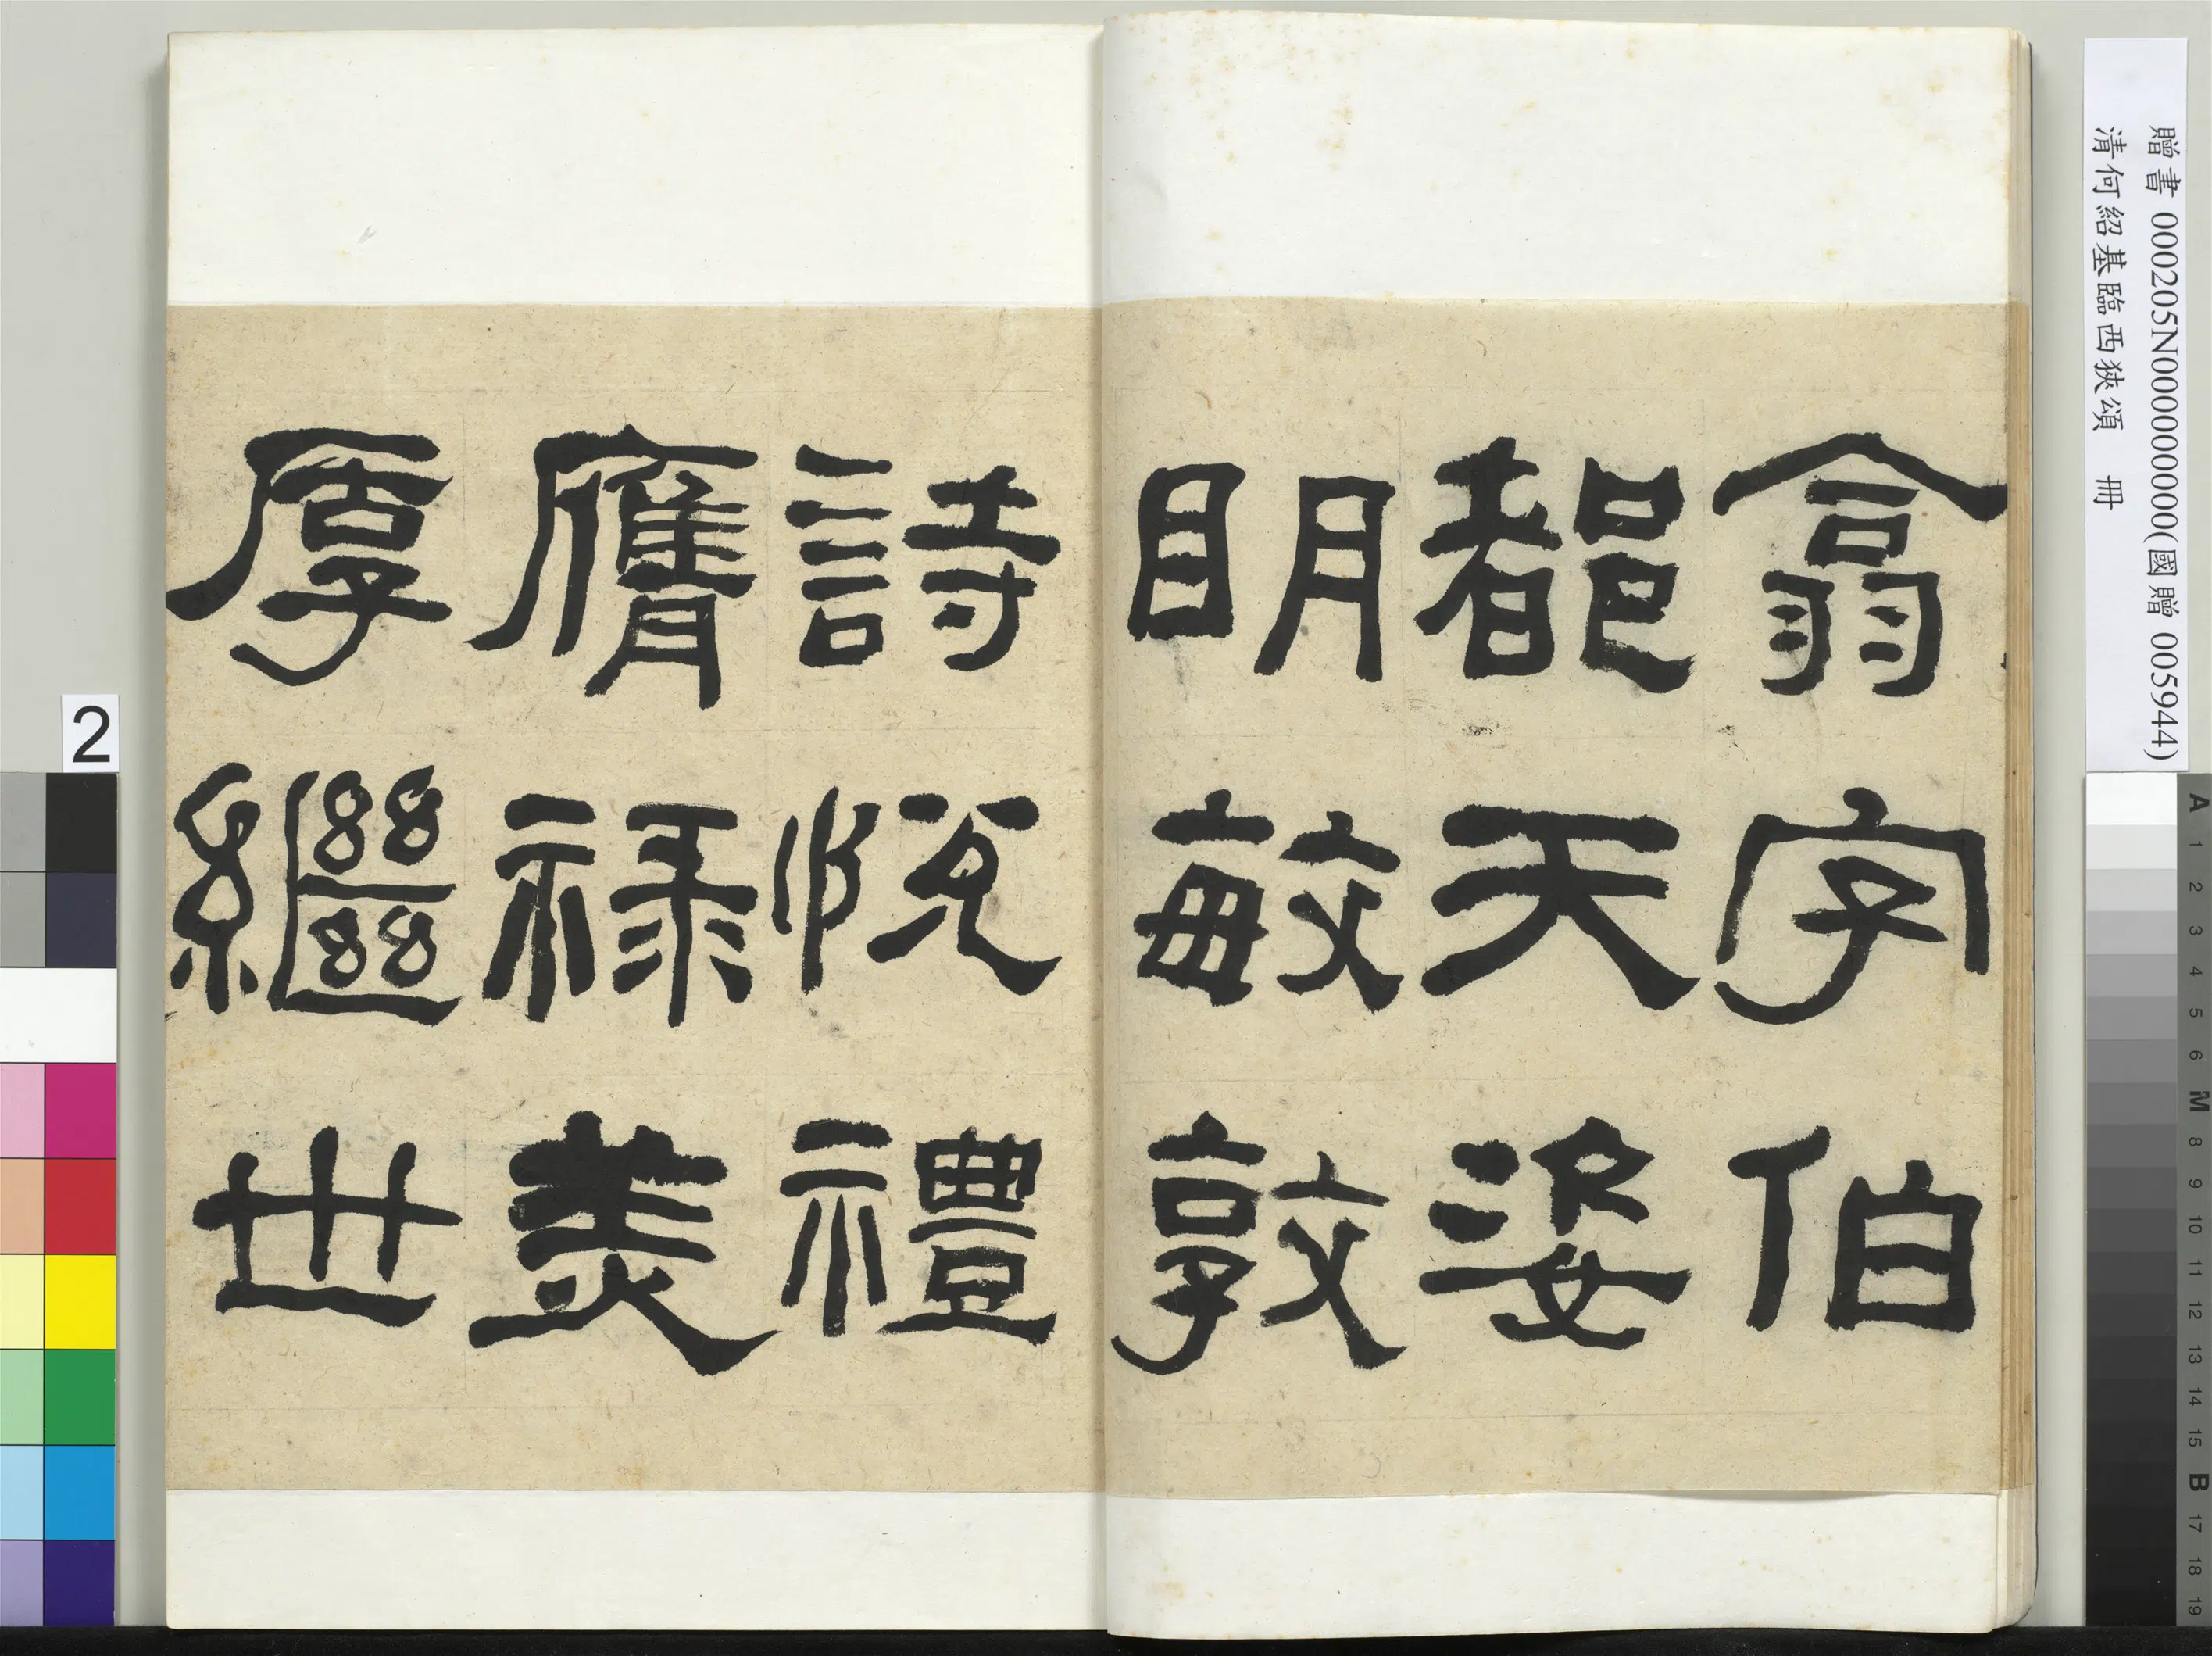 翕字伯
都天姿
明敏敦
詩悅禮
膺祿美
厚繼世
贈書 000205N000000000(國贈 005944)
清何紹基臨西狹頌 冊
2
A 1 2 3 4 5 6 M 8 9 10 11 12 13 14 15 B 17 18 19